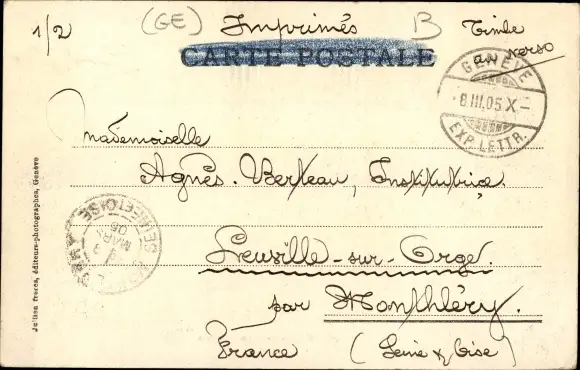 1/2 (GE) Imprimés B Timbre
au verso
CARTE POSTALE
GENÈVE
-8.III.05.X-
EXP. LETTR.
Mademoiselle
Agnès. Berteau, Institutrice.
Leuville-sur-Orge.
par Montlhéry.
France (Seine & Oise)
SEINE-ET-OISE
MARS
05
Jullien frères, éditeurs-photographes, Genève